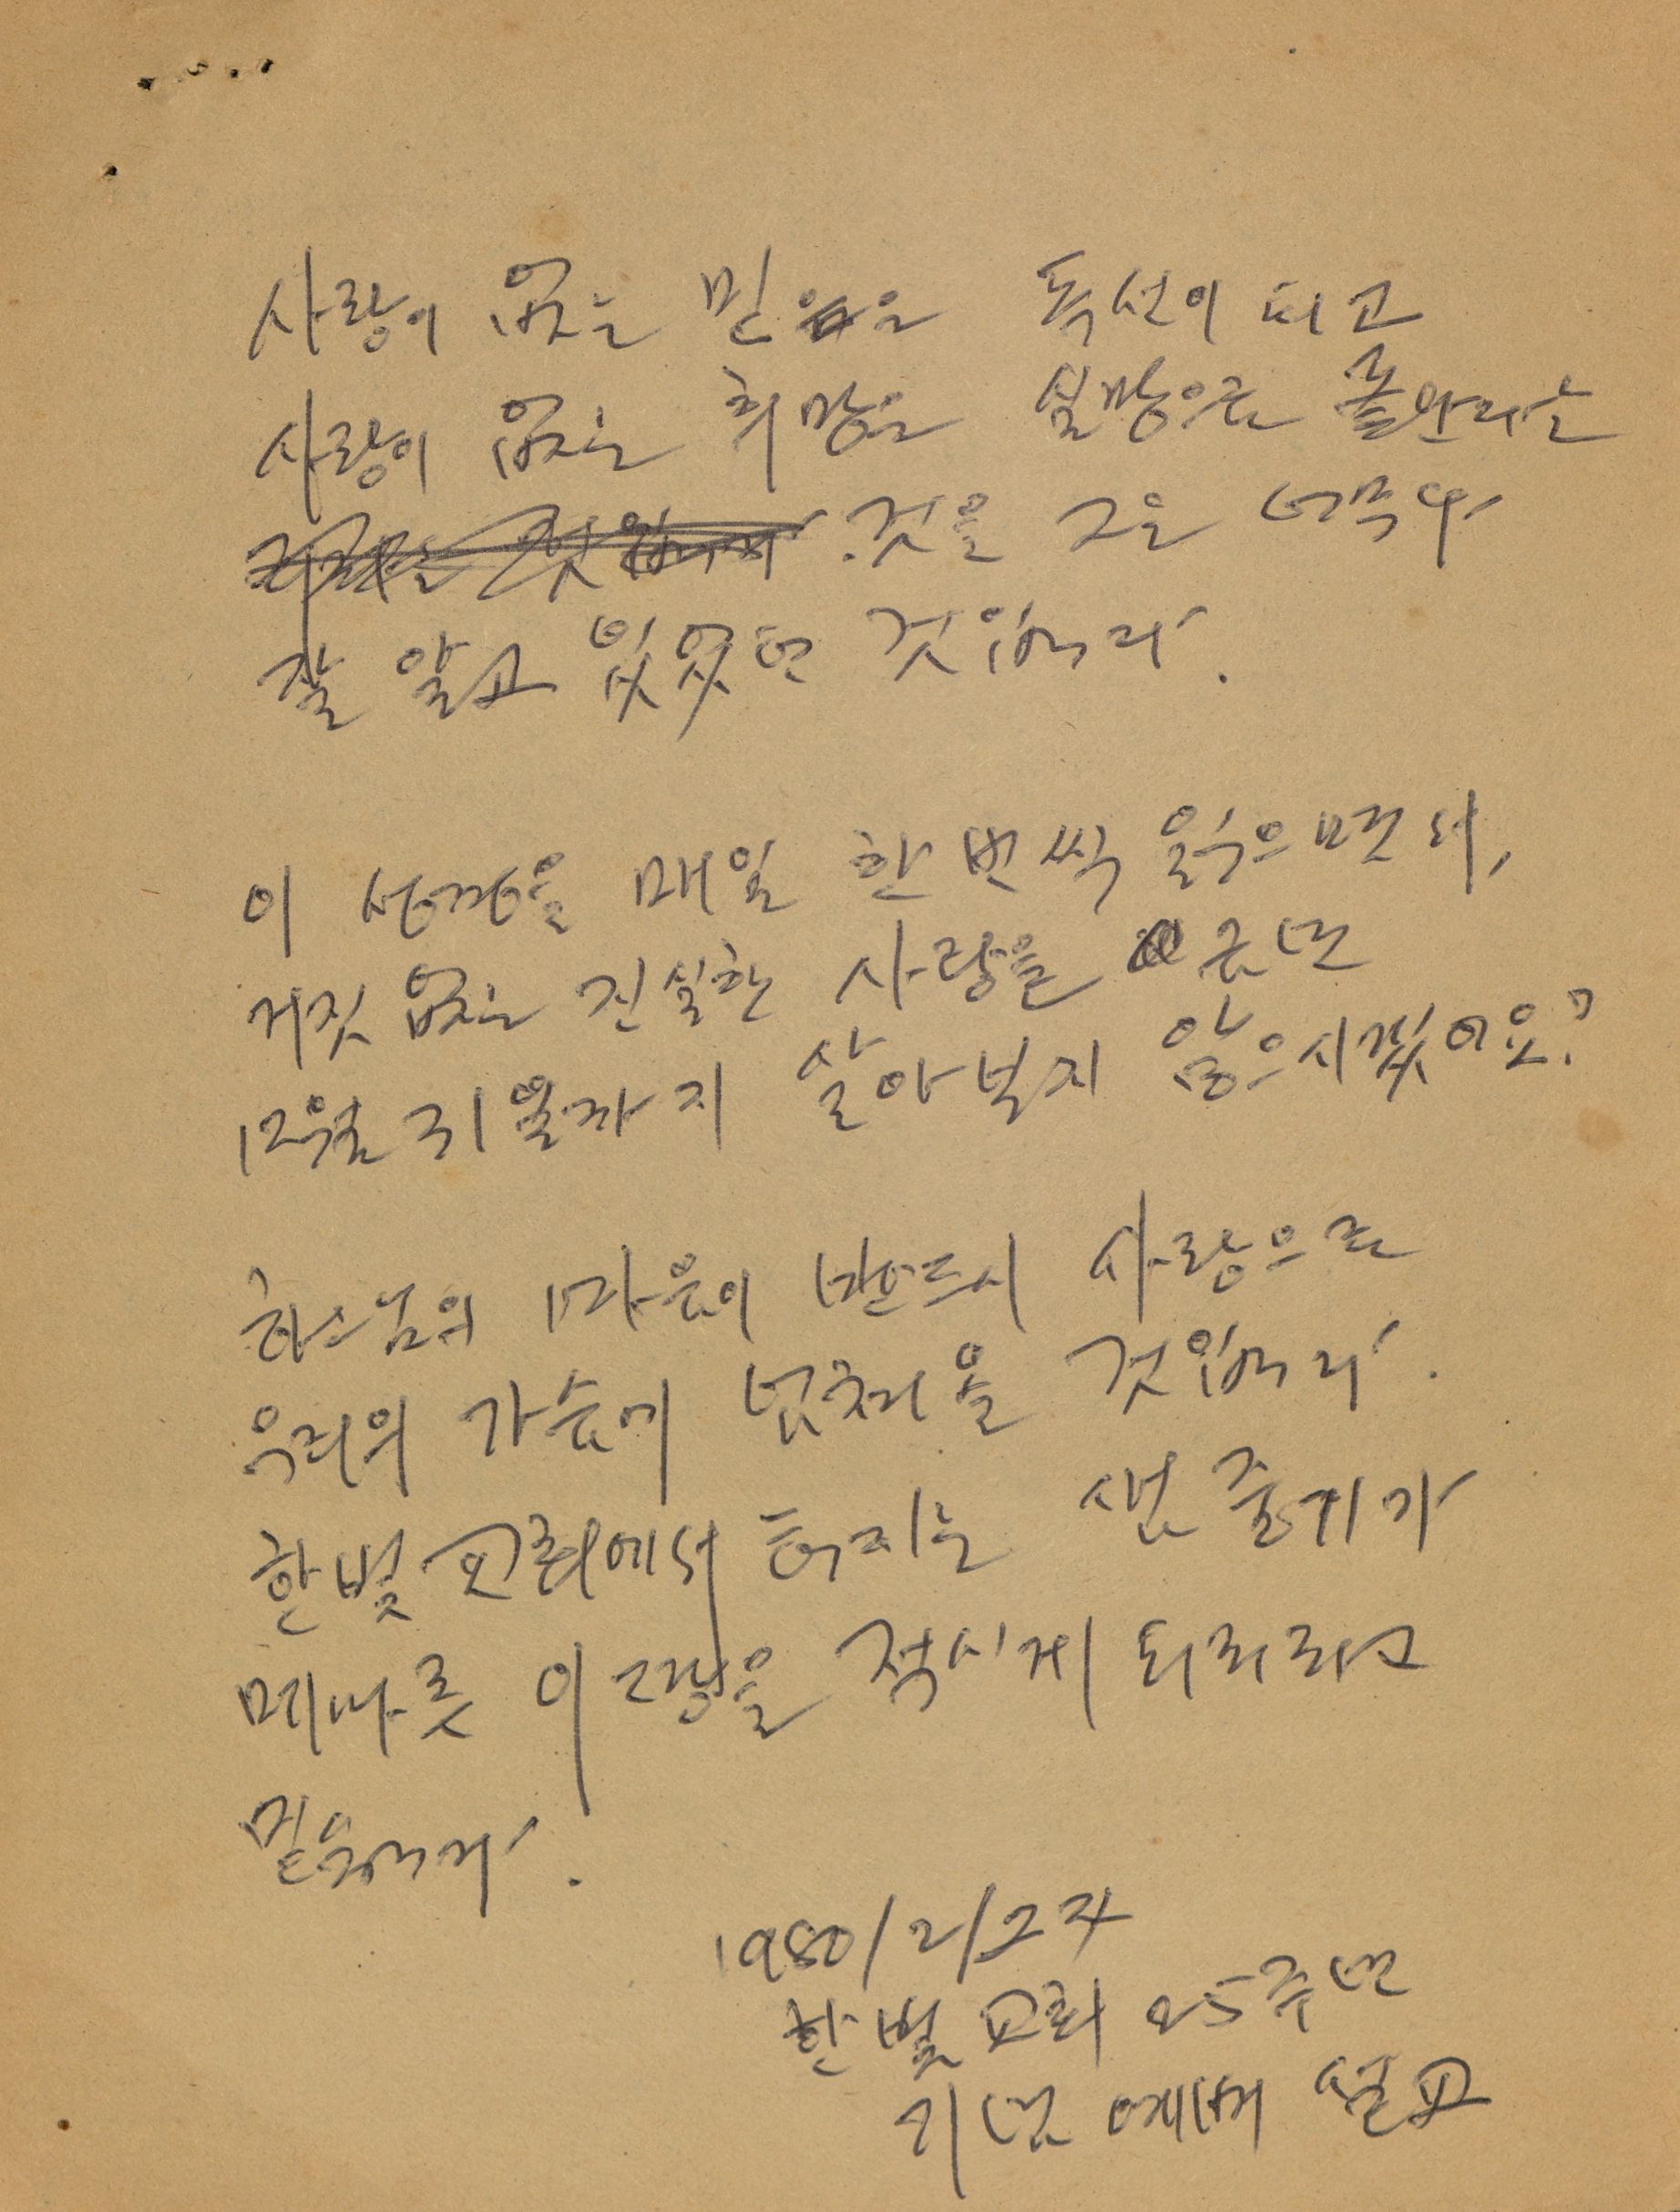 사랑이 없는 믿음은 독선이 되고
사랑이 없는 희망은 실망으로 돌아가는
것을 그은 너무나
잘 알고 있었던 것입니다.
이 성경을 매일 한 번씩 읽으면서,
거짓 없는 진실한 사랑을 금년
12월 31일까지 살아보지 않으시겠어요?
하느님의 마음이 반드시 사랑으로
우리의 가슴에 넘쳐올 것입니다.
한빛교회에서 터지는 샘 줄기가
메마른 이 땅을 적시게 되리라고
믿습니다.
1980/2/24
한빛교회 25주년
기념 예배 설교